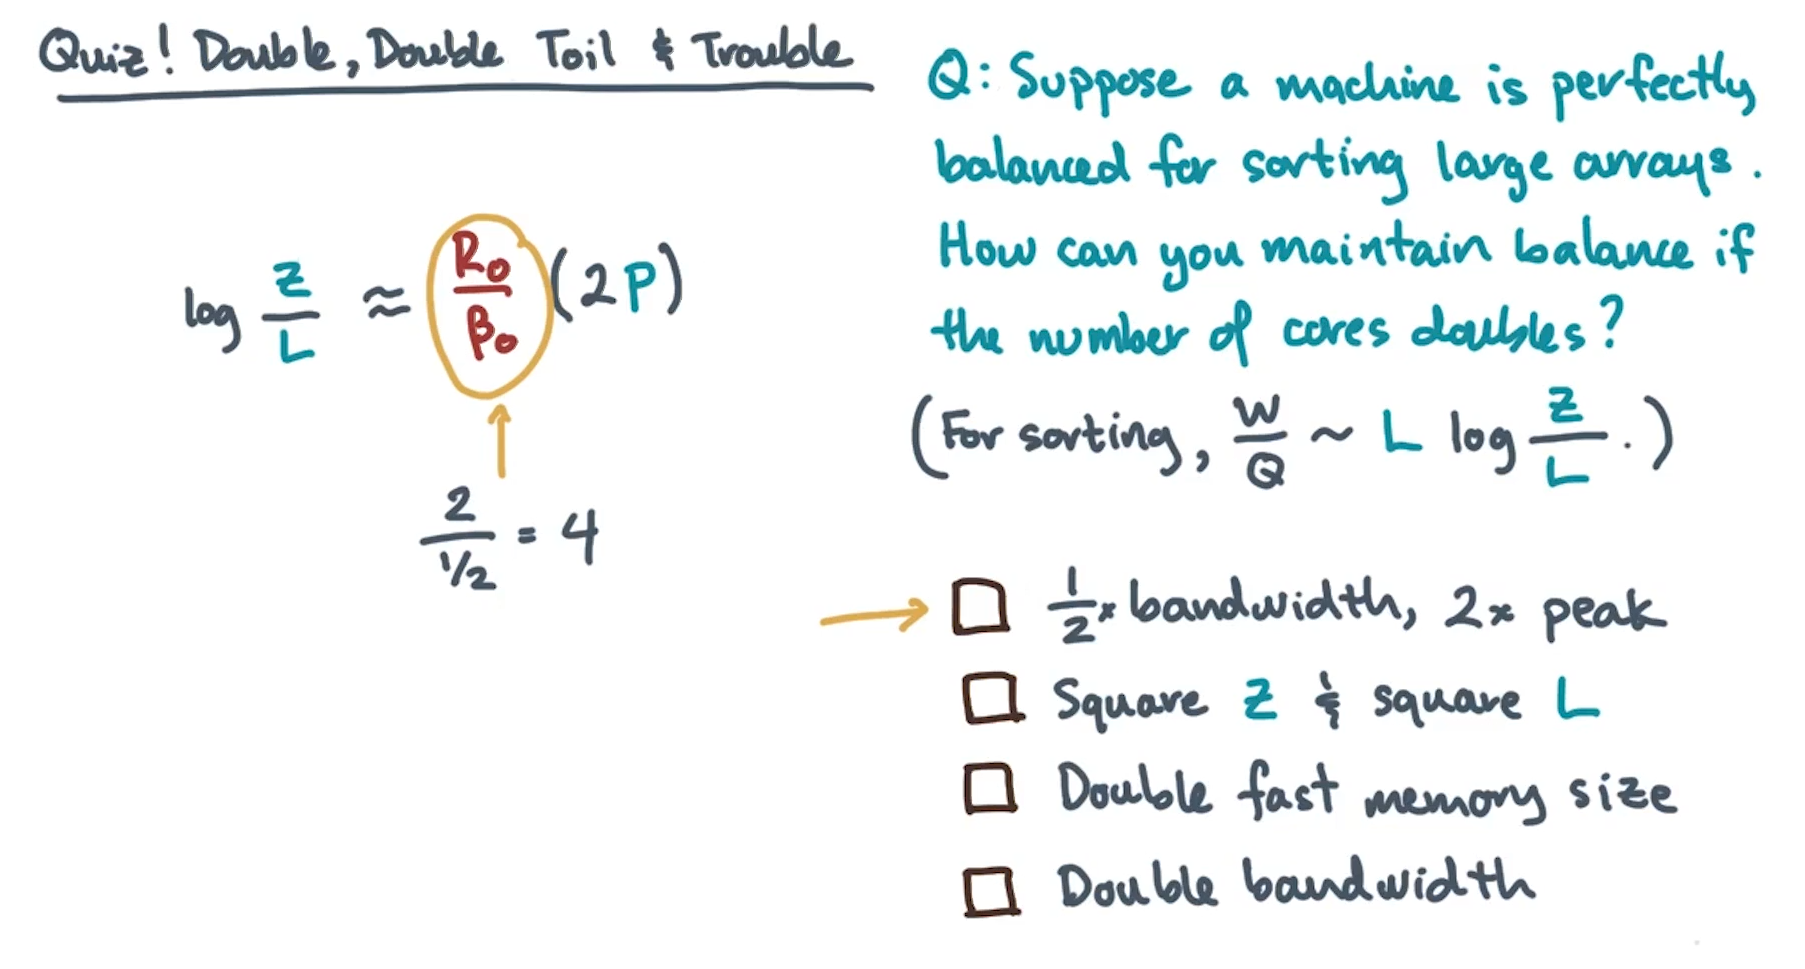 Quiz! Double, Double Toil & Trouble
log Z/L ≈ R₀/β₀ (2P)
2/½ = 4
Q: Suppose a machine is perfectly
balanced for sorting large arrays.
How can you maintain balance if
the number of cores doubles?
(For sorting, W/Q ~ L log Z/L.)
½x bandwidth, 2x peak
Square Z & square L
Double fast memory size
Double bandwidth